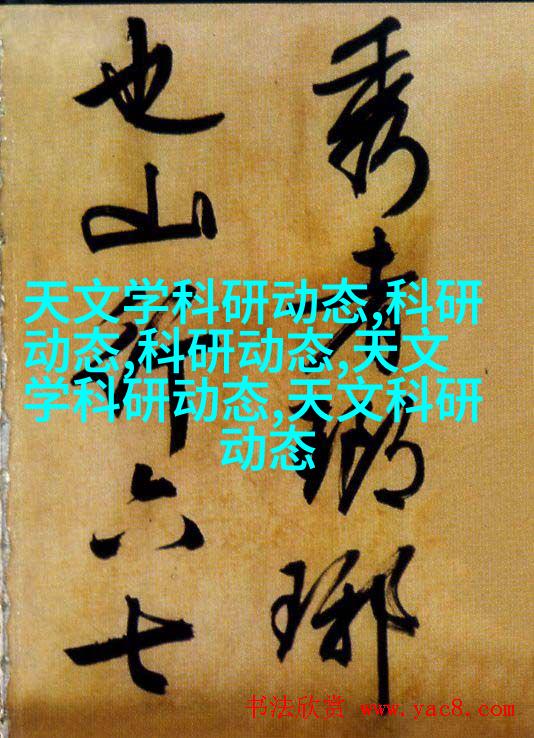 秀者瑯琊
也山行六七
天文学科研动态,科研
动态,科研动态,天文
学科研动态,天文科研
动态
书法欣赏 www.yac8.com